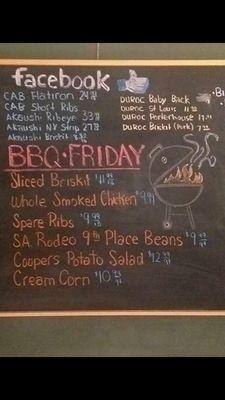 facebook
CAB Flatiron 24
CAB Short Ribs
Akaushi Ribeye 33
Akaushi NY Strip 27
Akaushi Briskit
Duroc Baby Back
Duroc St Louis 11
Duroc Porterhouse
Duroc Briskit (Pork) 7
BBQ·FRIDAY
Sliced Briskit
Whole Smoked Chicken $9.99
Spare Ribs $9
S.A. Rodeo 9th Place Beans $9
Coopers Potato Salad $12
Cream Corn $10